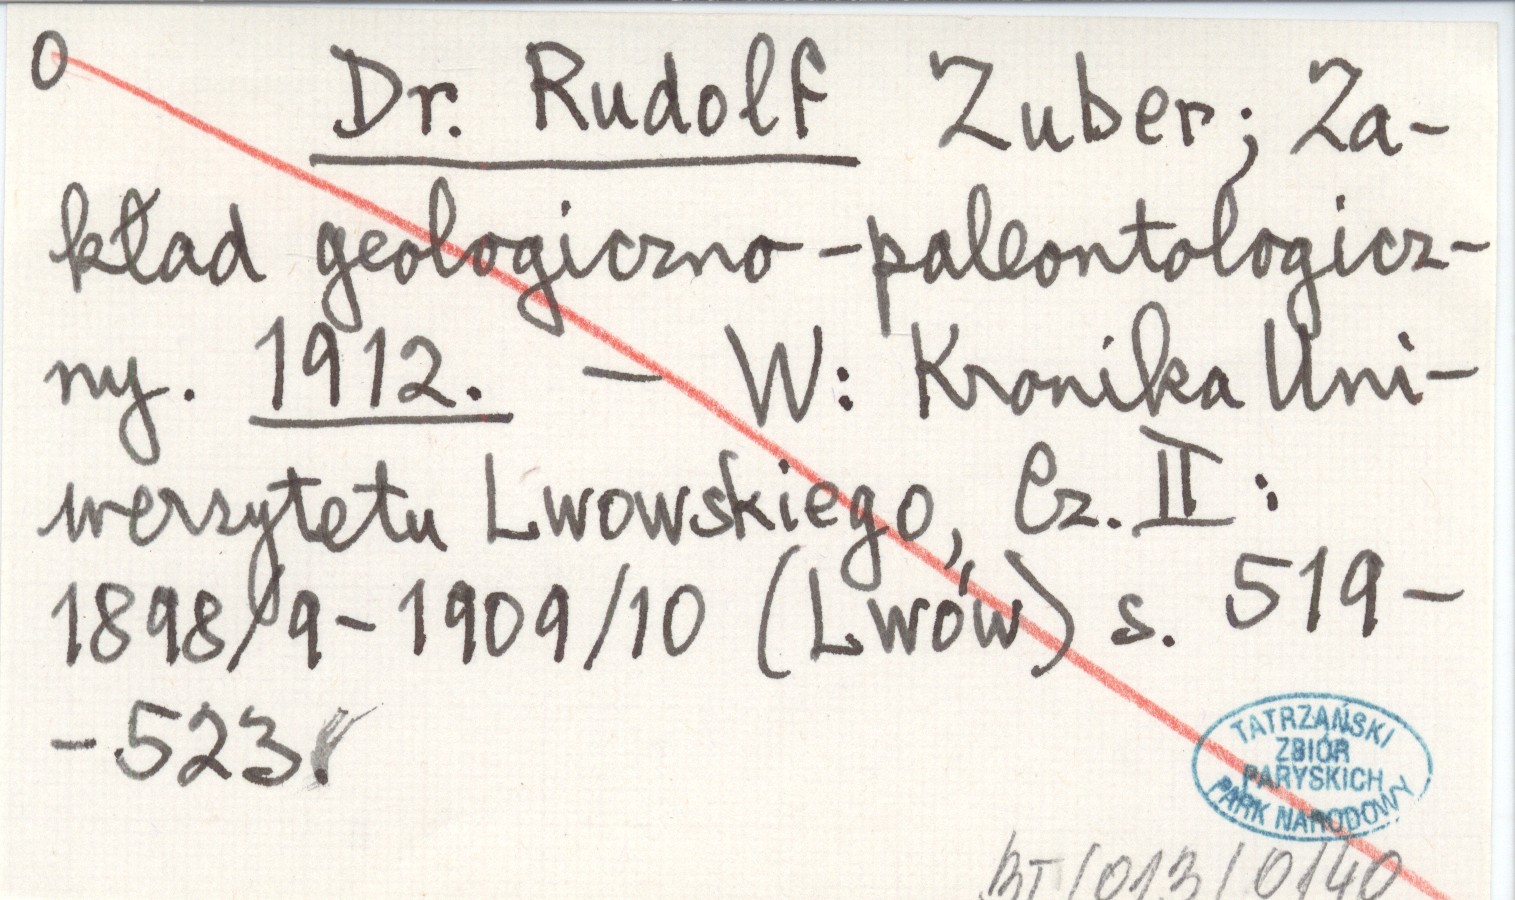 0 Dr. Rudolf Zuber; Za-
kład geologiczno-paleontologicz-
ny. 1912. — W: Kronika Uni-
wersytetu Lwowskiego, Cz. II:
1898/9-1909/10 (Lwów) s. 519-
-523.
TATRZAŃSKI
ZBIÓR
PARYSKICH
PARK NARODOWY
BT/013/0/40